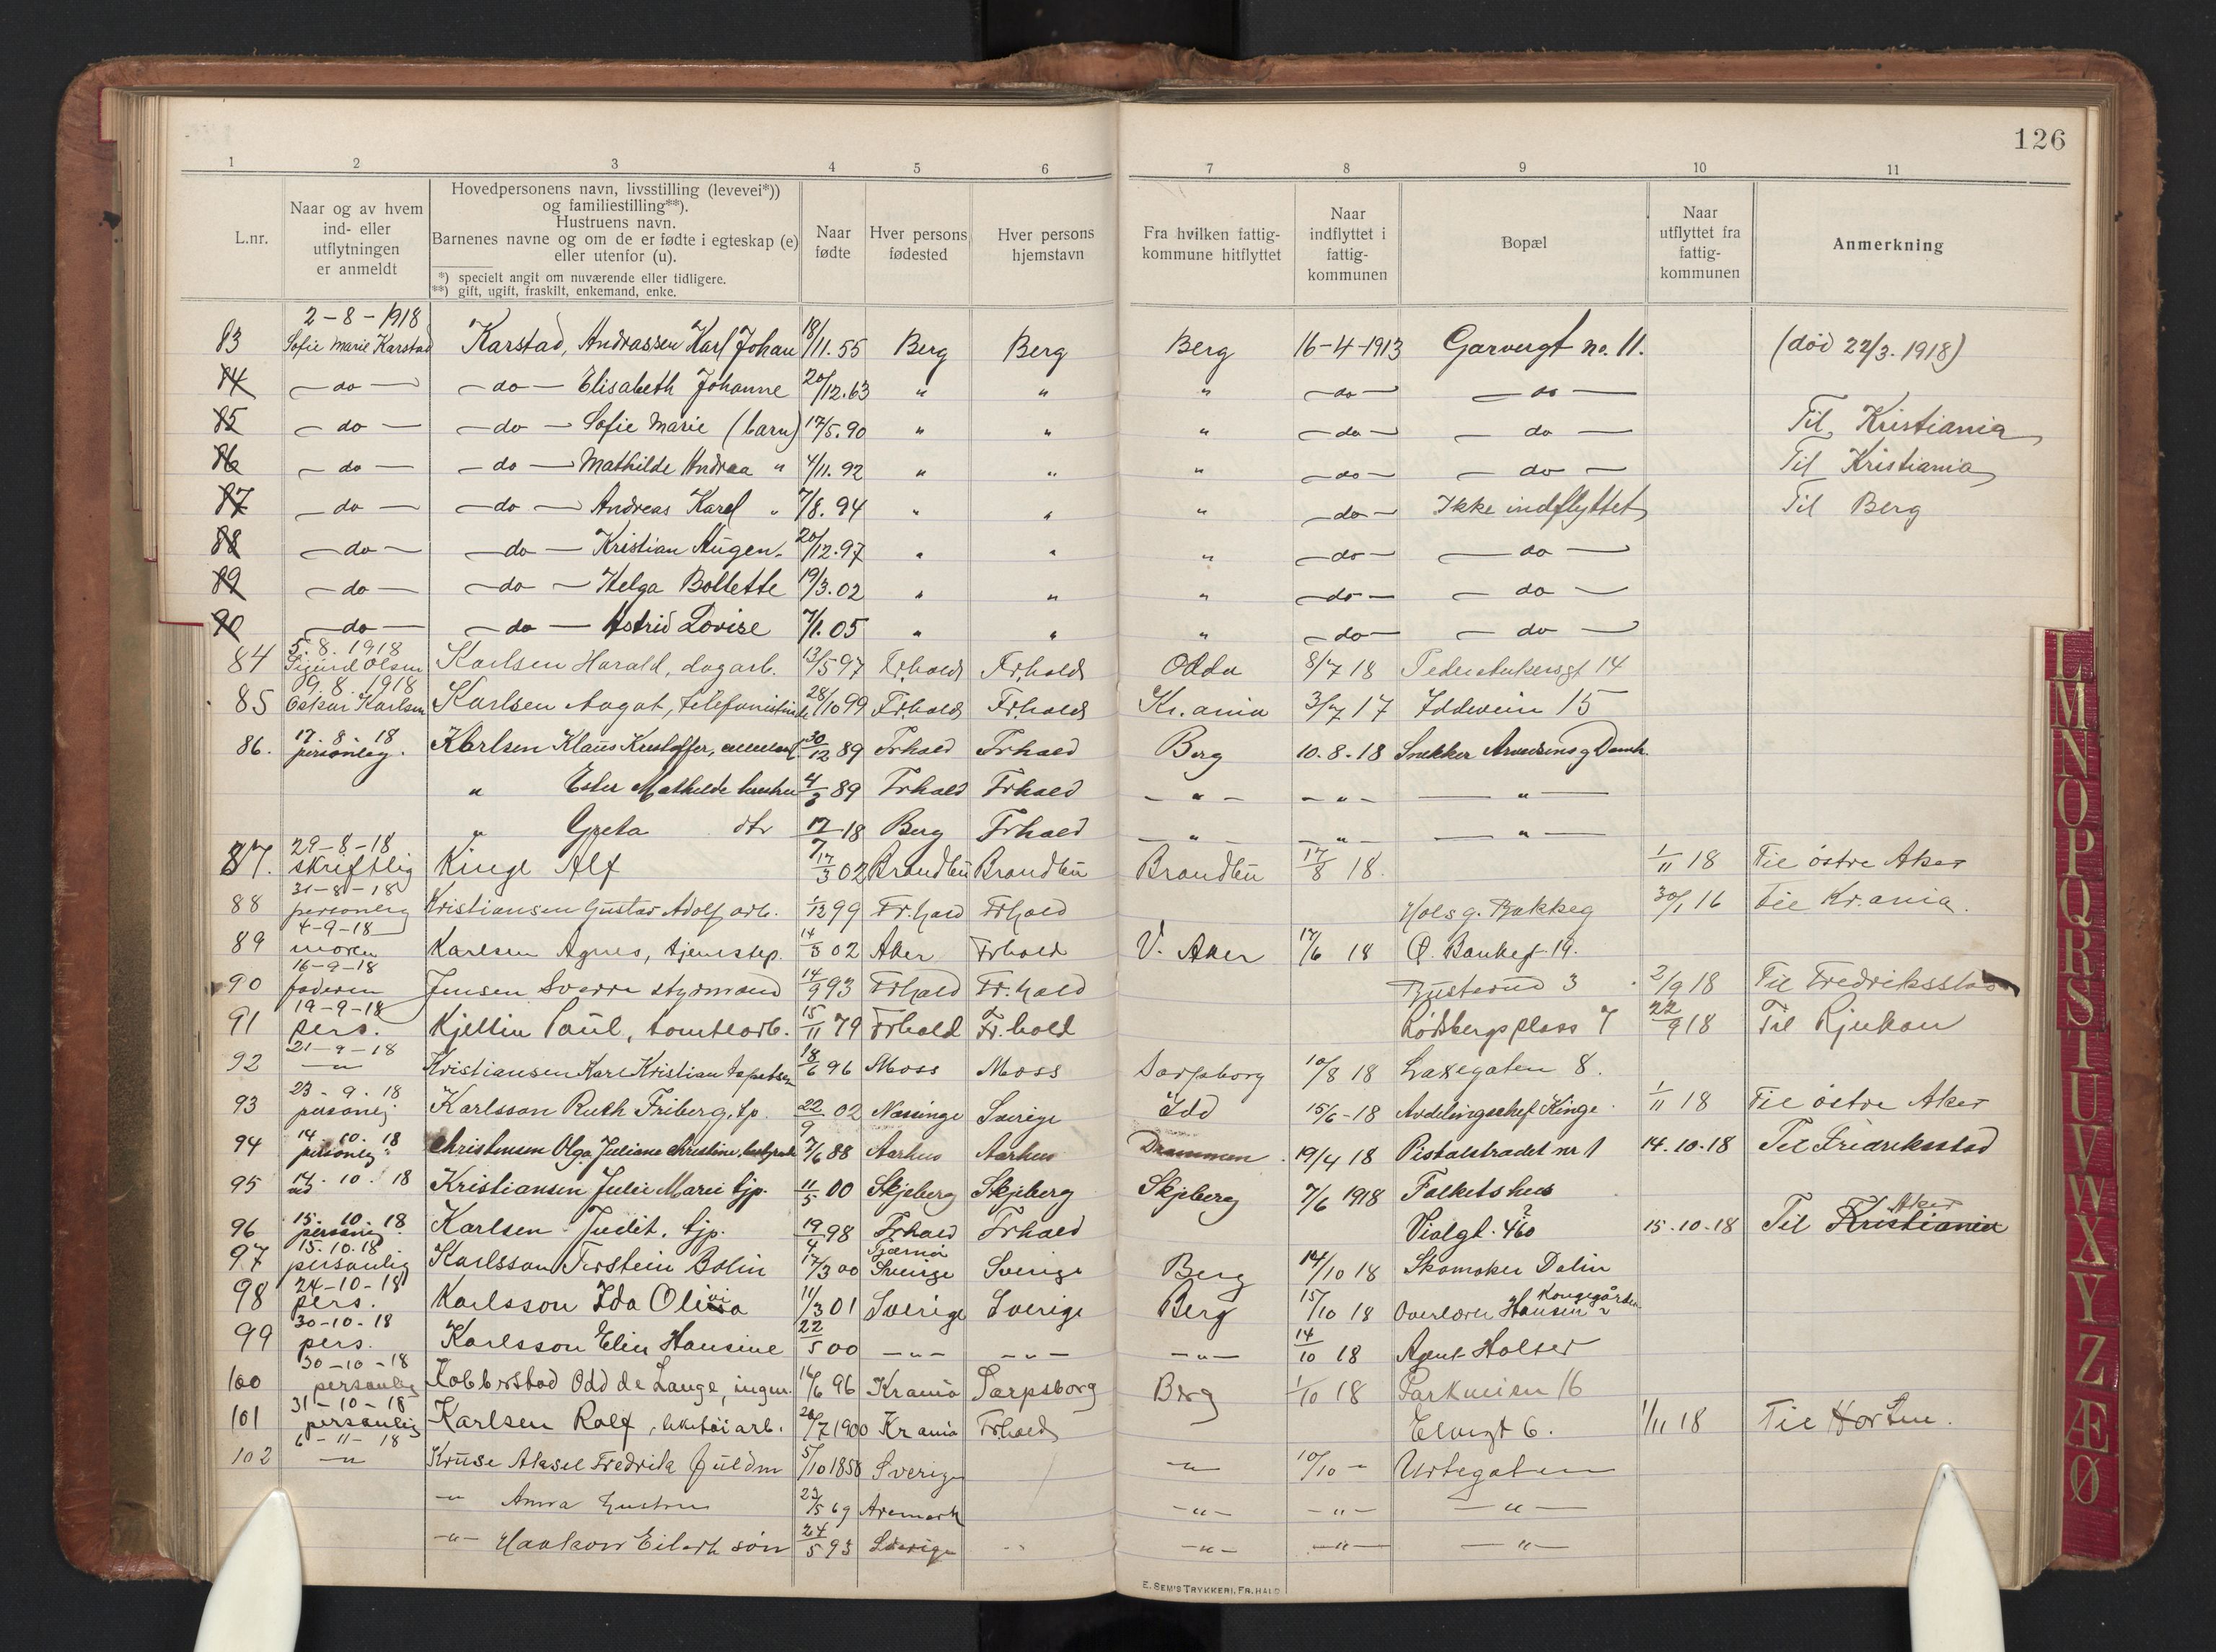 126
1 2 3 4 5 6 7 8 9 10 11
L.nr.
Naar og av hvem
ind- eller
utflytningen
er anmeldt
Hovedpersonens navn, livsstilling (levevei*))
og familiestilling**).
Hustruens navn.
Barnenes navne og om de er fødte i egteskap (e)
eller utenfor (u).
*) specielt angit om nuværende eller tidligere.
**) gift, ugift, fraskilt, enkemand, enke.
Naar
fødte
Hver persons
fødested
Hver persons
hjemstavn
Fra hvilken fattig-
kommune hitflyttet
Naar
indflyttet i
fattig-
kommunen
Bopæl
Naar
utflyttet fra
fattig-
kommunen
Anmerkning
2-8-1918
83 Sofie Marie Karstad Karstad, Andrassen Karl Johan 18/11.55 Berg Berg Berg 16-4-1913 Garvergt no. 11. (död 22/3.1918)
84 -do- -do- Elisabeth Johanne 20/12.63 " " " -do- -do-
85 -do- -do- Sofie Marie (barn) 17/5.90 " " " -do- -do- Til Kristiania
86 -do- -do- Mathilde Andrea " 4/11.92 " " " -do- -do- Til Kristiania
87 -do- -do- Andreas Karl " 7/8.94 " " " -do- Ikke indflyttet Til Berg
88 -do- -do- Kristian Augen. 20/12.97 " " " -do- -do-
89 -do- -do- Helga Bollette 19/3.02 " " " -do- -do-
90 -do- -do- Astrid Lovise 7/1.05 " " " -do- -do-
5.8.1918
84 Sigurd Olsen Karlsen Harald, dagarb. 13/5 97 Fr.hald Fr.hald Odda 8/7 18 Peder Ankersgt 14
9.8.1918
85 Oskar Karlsen Karlsen Aagot, telefonistinde 28/10 99 Fr.hald Fr.hald Kr.ania 3/7 17 Iddeveien 15
17.8.18
86. personlig. Karlsen Klaus Kristoffer, 30/12 89 Frhald Frhald Berg 10.8.18 Snekker
" Ester Mathilde hustru 4/3 89 Frhald Frhald -"- -"- -"-
" Greta dtr 17/7 18 Berg Frhald -"- -"- -"-
29-8-18
87. skriftlig Kinge Alf 17/3 02 Brandbu Brandbu Brandbu 17/8 18. 1/11 18 Til östre Aker
31-8-18
88 personlig Kristiansen Gustav Adolf arb. 1/12 99 Fr.hald Frhald Hols g. Bakkeg 30/1 16 til Kr.ania.
4-9-18
89 moren Karlsen Agnes, tjenestep. 14/3 02 Aker Frhald V. Aker 17/6 18 O. Bankegt 19.
16-9-18
90 faderen Jensen Sverre styrmand 14/9 93 Frhald Fr.hald Busterud 3 2/9 18 Til Fredriksstad
19-9-18
91 pers. Kjellin Paul, tomtearb. 15/11 79 Frhald Fr.hald Rödsbergs plass 7 22/9 18 Til Rjukan
21-9-18
92 -"- Kristiansen Karl Kristian tapetserer 18/6 96 Moss Moss Sarpsborg 10/8 18 Laxegaten 8.
23.9.18
93 personlig Karlsson Ruth Friberg, tp. 22/9 02 Nassinge Sverige Idd 15/6-18 Avdelingschef Kinge. 1/11 18 Til östre Aker
14.10.18
94 personlig Christensen Olga Juliane Christine, bestyrerinde 7/6 88 Aarhus Aarhus Drammen 19/4 18 Pistolstrædet nr 1 14.10.18 Til Fredriksstad
95 14.10.18 Kristiansen Julie Marie tjp. 11/5 00 Skjeberg Skjeberg Skjeberg 7/6 1918 Folkets hus
15.10.18
96 personlig. Karlsen Judit, tjp. 19/4 98 Frhald Frhald Violgt. 46 ? 15.10.18 Til Kristiania Aker
15.10.18
97 personlig Karlsson Torstein Bolin 17/3 00 Tjærnö Sverige Sverige Berg 14/10 18 Skomaker Dalin
24-10-18
98 pers. Karlsson Ida Olivia 11/3 01 Sverige Sverige Berg 15/10 18 Overlærer Hansen Kongegården
30-10-18
99 pers. Karlsson Elin Hansine 22/5 00 -"- -"- -"- 14/10 18 Agent Holter
30-10-18
100 personlig Kobberstad Odd de Lange, ingen. 16/6 96 Krania Sarpsborg Berg 1/10 18 Parkveien 16
31-10-18
101 personlig Karlsen Rolf, leketöiarb. 20/7 1900 Krania Frhald Elvegt 6. 1/11 18 Til Horten.
6-11-18
102 -"- Kruse Aksel Fredrik Guldm 5/10 1858 Sverige -"- 10/10 -"- Urtegaten
-"- Anna hustru 22/5 69 Aremark -"- -"- -"-
-"- Haakon Eilert sön 24/5 93 Sverige -"- -"- -"- -"-
E. SEM'S TRYKKERI, FR.HALD
L
M
N
O
P
Q
R
S
T
U
V
W
X
Y
Z
Æ
Ø